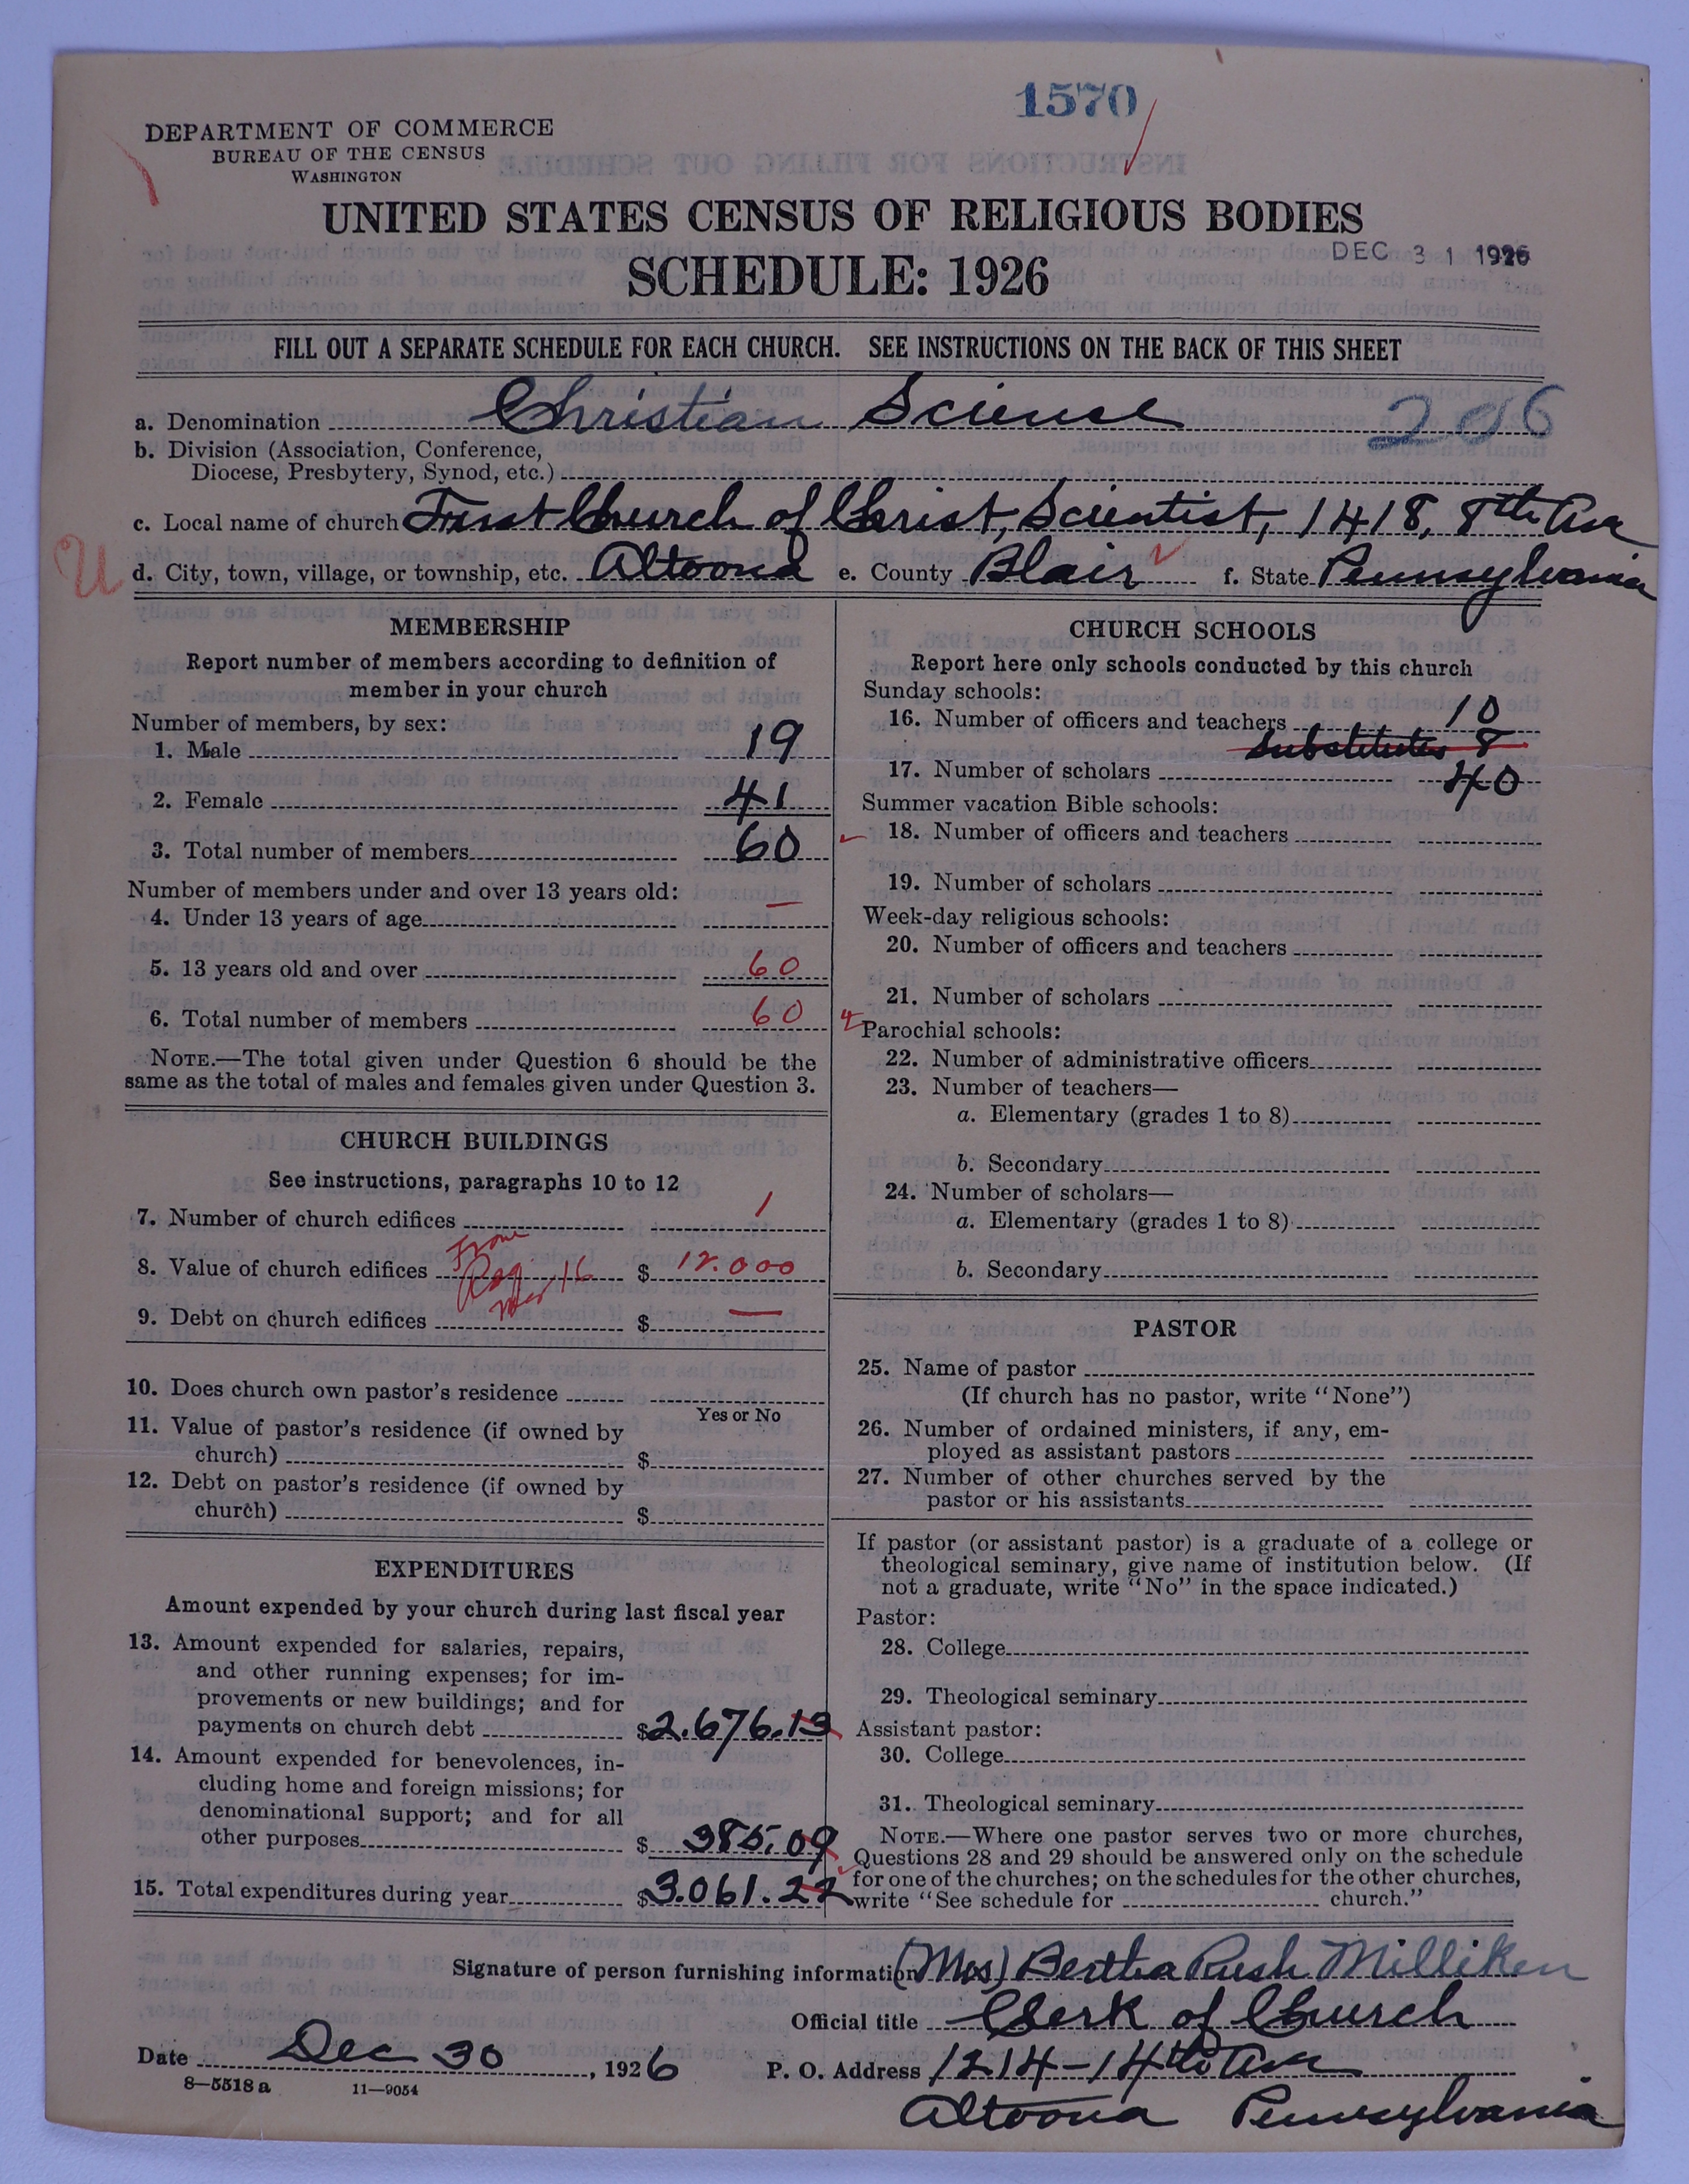 1570
DEPARTMENT OF COMMERCE
BUREAU OF THE CENSUS
WASHINGTON
UNITED STATES CENSUS OF RELIGIOUS BODIES
DEC 31 1926
SCHEDULE: 1926
FILL OUT A SEPARATE SCHEDULE FOR EACH CHURCH. SEE INSTRUCTIONS ON THE BACK OF THIS SHEET
a. Denomination Christian Science 206
b. Division (Association, Conference,
Diocese, Presbytery, Synod, etc.)
c. Local name of church First Church of Christ, Scientist, 1418, 8th Ave
U
d. City, town, village, or township, etc. Altoona e. County Blair f. State Pennsylvania
MEMBERSHIP
Report number of members according to definition of
member in your church
Number of members, by sex:
1. Male 19
2. Female 41
3. Total number of members 60
Number of members under and over 13 years old:
4. Under 13 years of age —
5. 13 years old and over 60
6. Total number of members 60
NOTE.—The total given under Question 6 should be the
same as the total of males and females given under Question 3.
CHURCH BUILDINGS
See instructions, paragraphs 10 to 12
7. Number of church edifices 1
From
8. Value of church edifices 16 $ 12.000
9. Debt on church edifices $ —
10. Does church own pastor's residence
Yes or No
11. Value of pastor's residence (if owned by
church) $
12. Debt on pastor's residence (if owned by
church) $
EXPENDITURES
Amount expended by your church during last fiscal year
13. Amount expended for salaries, repairs,
and other running expenses; for im-
provements or new buildings; and for
payments on church debt $2.676.13
14. Amount expended for benevolences, in-
cluding home and foreign missions; for
denominational support; and for all
other purposes $ 385.09
15. Total expenditures during year $3.061.22
CHURCH SCHOOLS
Report here only schools conducted by this church
Sunday schools:
16. Number of officers and teachers 10
Substitutes 8
17. Number of scholars 40
Summer vacation Bible schools:
18. Number of officers and teachers
19. Number of scholars
Week-day religious schools:
20. Number of officers and teachers
21. Number of scholars
Parochial schools:
22. Number of administrative officers
23. Number of teachers—
a. Elementary (grades 1 to 8)
b. Secondary
24. Number of scholars—
a. Elementary (grades 1 to 8)
b. Secondary
PASTOR
25. Name of pastor
(If church has no pastor, write "None")
26. Number of ordained ministers, if any, em-
ployed as assistant pastors
27. Number of other churches served by the
pastor or his assistants
If pastor (or assistant pastor) is a graduate of a college or
theological seminary, give name of institution below. (If
not a graduate, write "No" in the space indicated.)
Pastor:
28. College
29. Theological seminary
Assistant pastor:
30. College
31. Theological seminary
NOTE.—Where one pastor serves two or more churches,
Questions 28 and 29 should be answered only on the schedule
for one of the churches; on the schedules for the other churches,
write "See schedule for church."
Signature of person furnishing information (Mrs) Bertha Rush Milliken
Official title Clerk of Church
Date Dec 30, 1926 P. O. Address 1214-14th Ave
8—5518 a 11—9054
Altoona Pennsylvania